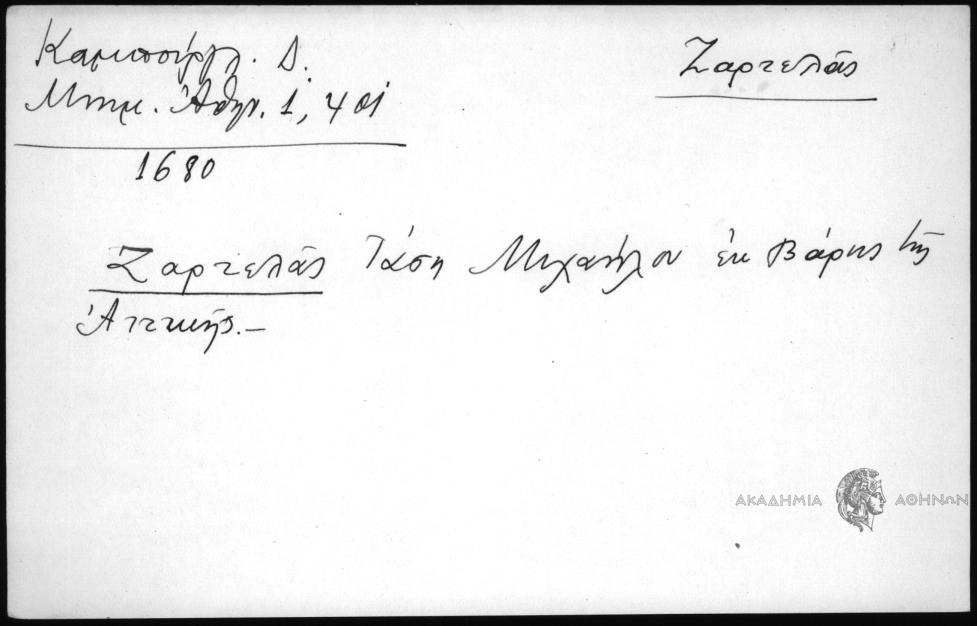 Καμπούργλ. Δ.
Μνημ. Ἀθην. 1, 401
1680
Ζαρτελᾶς
Ζαρτελᾶς Τάση Μιχαήλου ἐκ Βάρης τῆς
Ἀττικῆς.–
ΑΚΑΔΗΜΙΑ ΑΘΗΝΩΝ